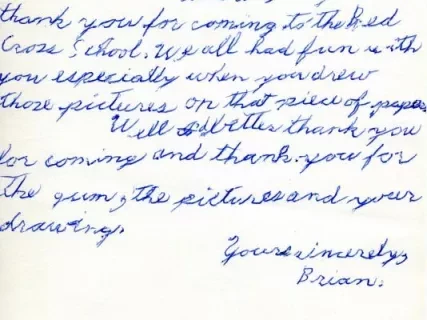 thank you for coming to the Red
Cross School. We all had fun with
you especially when you drew
those pictures on that piece of paper
Well better thank you
for coming and thank you for
the gum, the pictures and your
drawing.
Yours sincerely,
Brian.